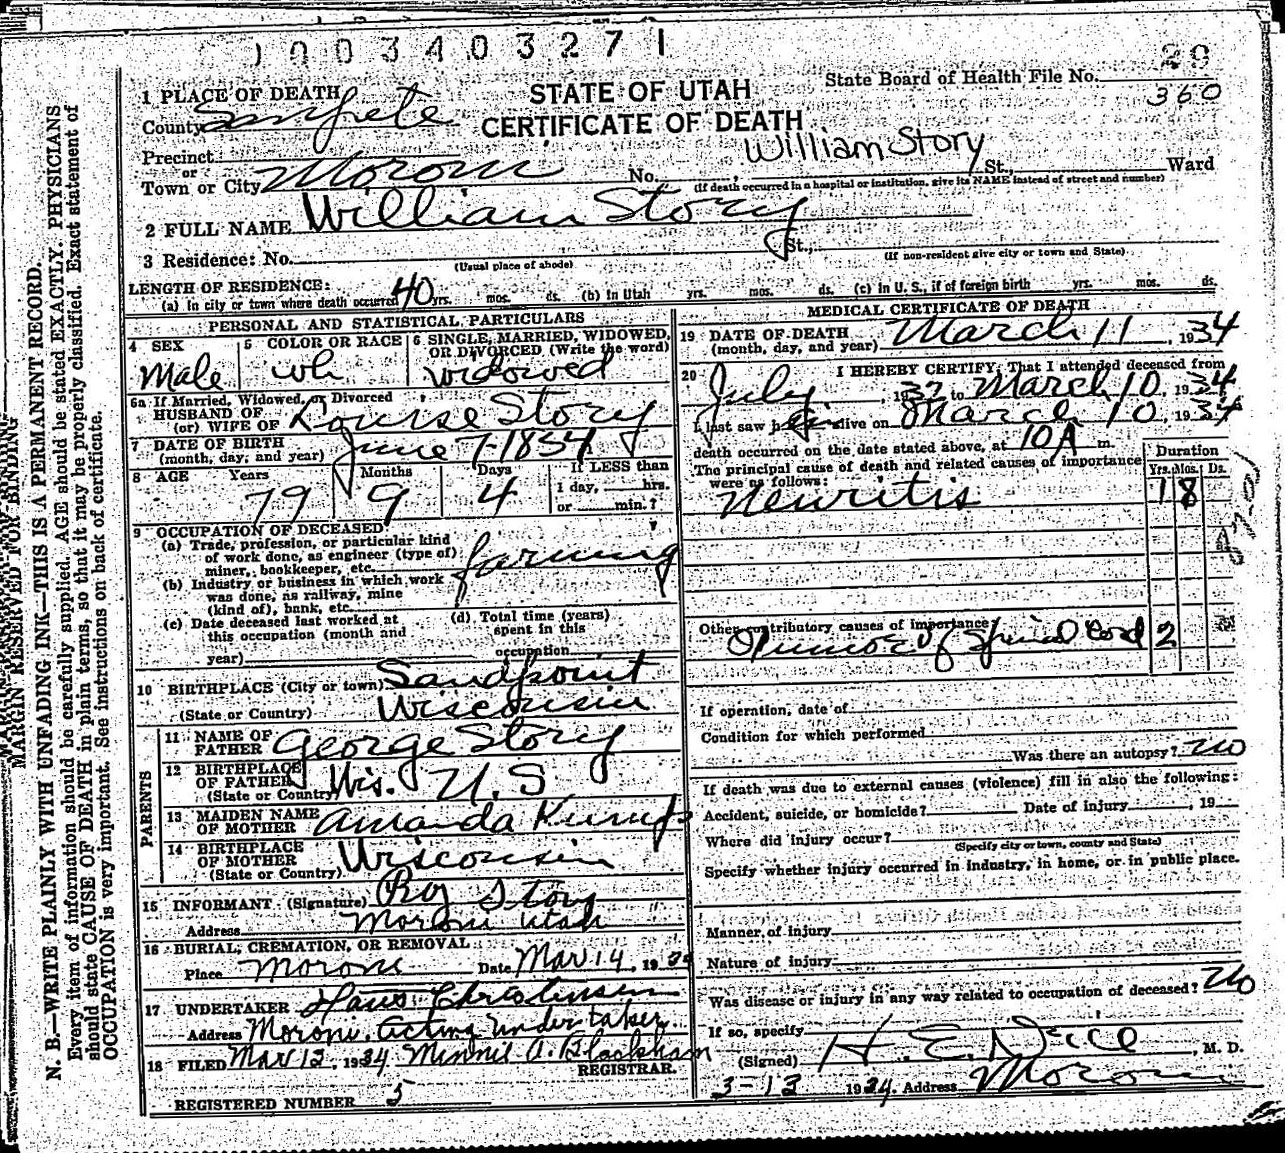 1003403271
29
State Board of Health File No.
360
1 PLACE OF DEATH
STATE OF UTAH
County Sanpete
CERTIFICATE OF DEATH
Precinct
William Story
or
Town or City Moroni No. St., Ward
(If death occurred in a hospital or institution, give its NAME instead of street and number)
2 FULL NAME William Story
3 Residence: No. St.,
(Usual place of abode) (If non-resident give city or town and State)
LENGTH OF RESIDENCE:
(a) In city or town where death occurred 40 yrs. mos. ds. (b) in Utah yrs. mos. ds. (c) in U. S., if of foreign birth yrs. mos. ds.
PERSONAL AND STATISTICAL PARTICULARS
4 SEX
Male
5 COLOR OR RACE
wh
6 SINGLE, MARRIED, WIDOWED,
OR DIVORCED (Write the word)
widowed
6a If Married, Widowed, or Divorced
HUSBAND OF
(or) WIFE OF Louise Story
7 DATE OF BIRTH
(month, day, and year) June 7-1854
8 AGE Years Months Days If LESS than
79 9 4 1 day, hrs.
or min.?
9 OCCUPATION OF DECEASED
(a) Trade, profession, or particular kind
of work done, as engineer (type of)
miner, bookkeeper, etc. farming
(b) Industry or business in which work
was done, as railway, mine
(kind of), bank, etc.
(c) Date deceased last worked at
this occupation (month and
year)
(d) Total time (years)
spent in this
occupation
10 BIRTHPLACE (City or town) Sandpoint
(State or Country) Wisconsin
PARENTS
11 NAME OF
FATHER George Story
12 BIRTHPLACE
OF FATHER
(State or Country) Wis. U. S
13 MAIDEN NAME
OF MOTHER Amanda
14 BIRTHPLACE
OF MOTHER
(State or Country) Wisconsin
15 INFORMANT (Signature) Roy Story
Address Moroni Utah
16 BURIAL, CREMATION, OR REMOVAL
Place Moroni Date Mar 14, 1934
17 UNDERTAKER Hans Christensen
Address Moroni. Acting undertaker
18 FILED Mar 12, 1934 Minnie A. Blackham
REGISTRAR.
REGISTERED NUMBER 5
MEDICAL CERTIFICATE OF DEATH
19 DATE OF DEATH
(month, day, and year) March 11, 1934
20 I HEREBY CERTIFY, That I attended deceased from
July, 1932 to March 10, 1934
I last saw him alive on March 10, 1934
death occurred on the date stated above, at 10A m.
The principal cause of death and related causes of importance
were as follows:
Duration
Yrs. Mos. Ds.
Neuritis 1 8
Other contributory causes of importance
of Spinal Cord 2
If operation, date of
Condition for which performed
Was there an autopsy? no
If death was due to external causes (violence) fill in also the following:
Accident, suicide, or homicide? Date of injury, 19
Where did injury occur?
(Specify city or town, county and State)
Specify whether injury occurred in industry, in home, or in public place.
Manner of injury
Nature of injury
Was disease or injury in any way related to occupation of deceased? no
If so, specify
(Signed) H. E. , M. D.
3-13 1934. Address Moroni
MARGIN RESERVED FOR BINDING
N. B.—WRITE PLAINLY WITH UNFADING INK—THIS IS A PERMANENT RECORD.
Every item of information should be carefully supplied. AGE should be stated EXACTLY. PHYSICIANS
should state CAUSE OF DEATH in plain terms, so that it may be properly classified. Exact statement of
OCCUPATION is very important. See instructions on back of certificate.